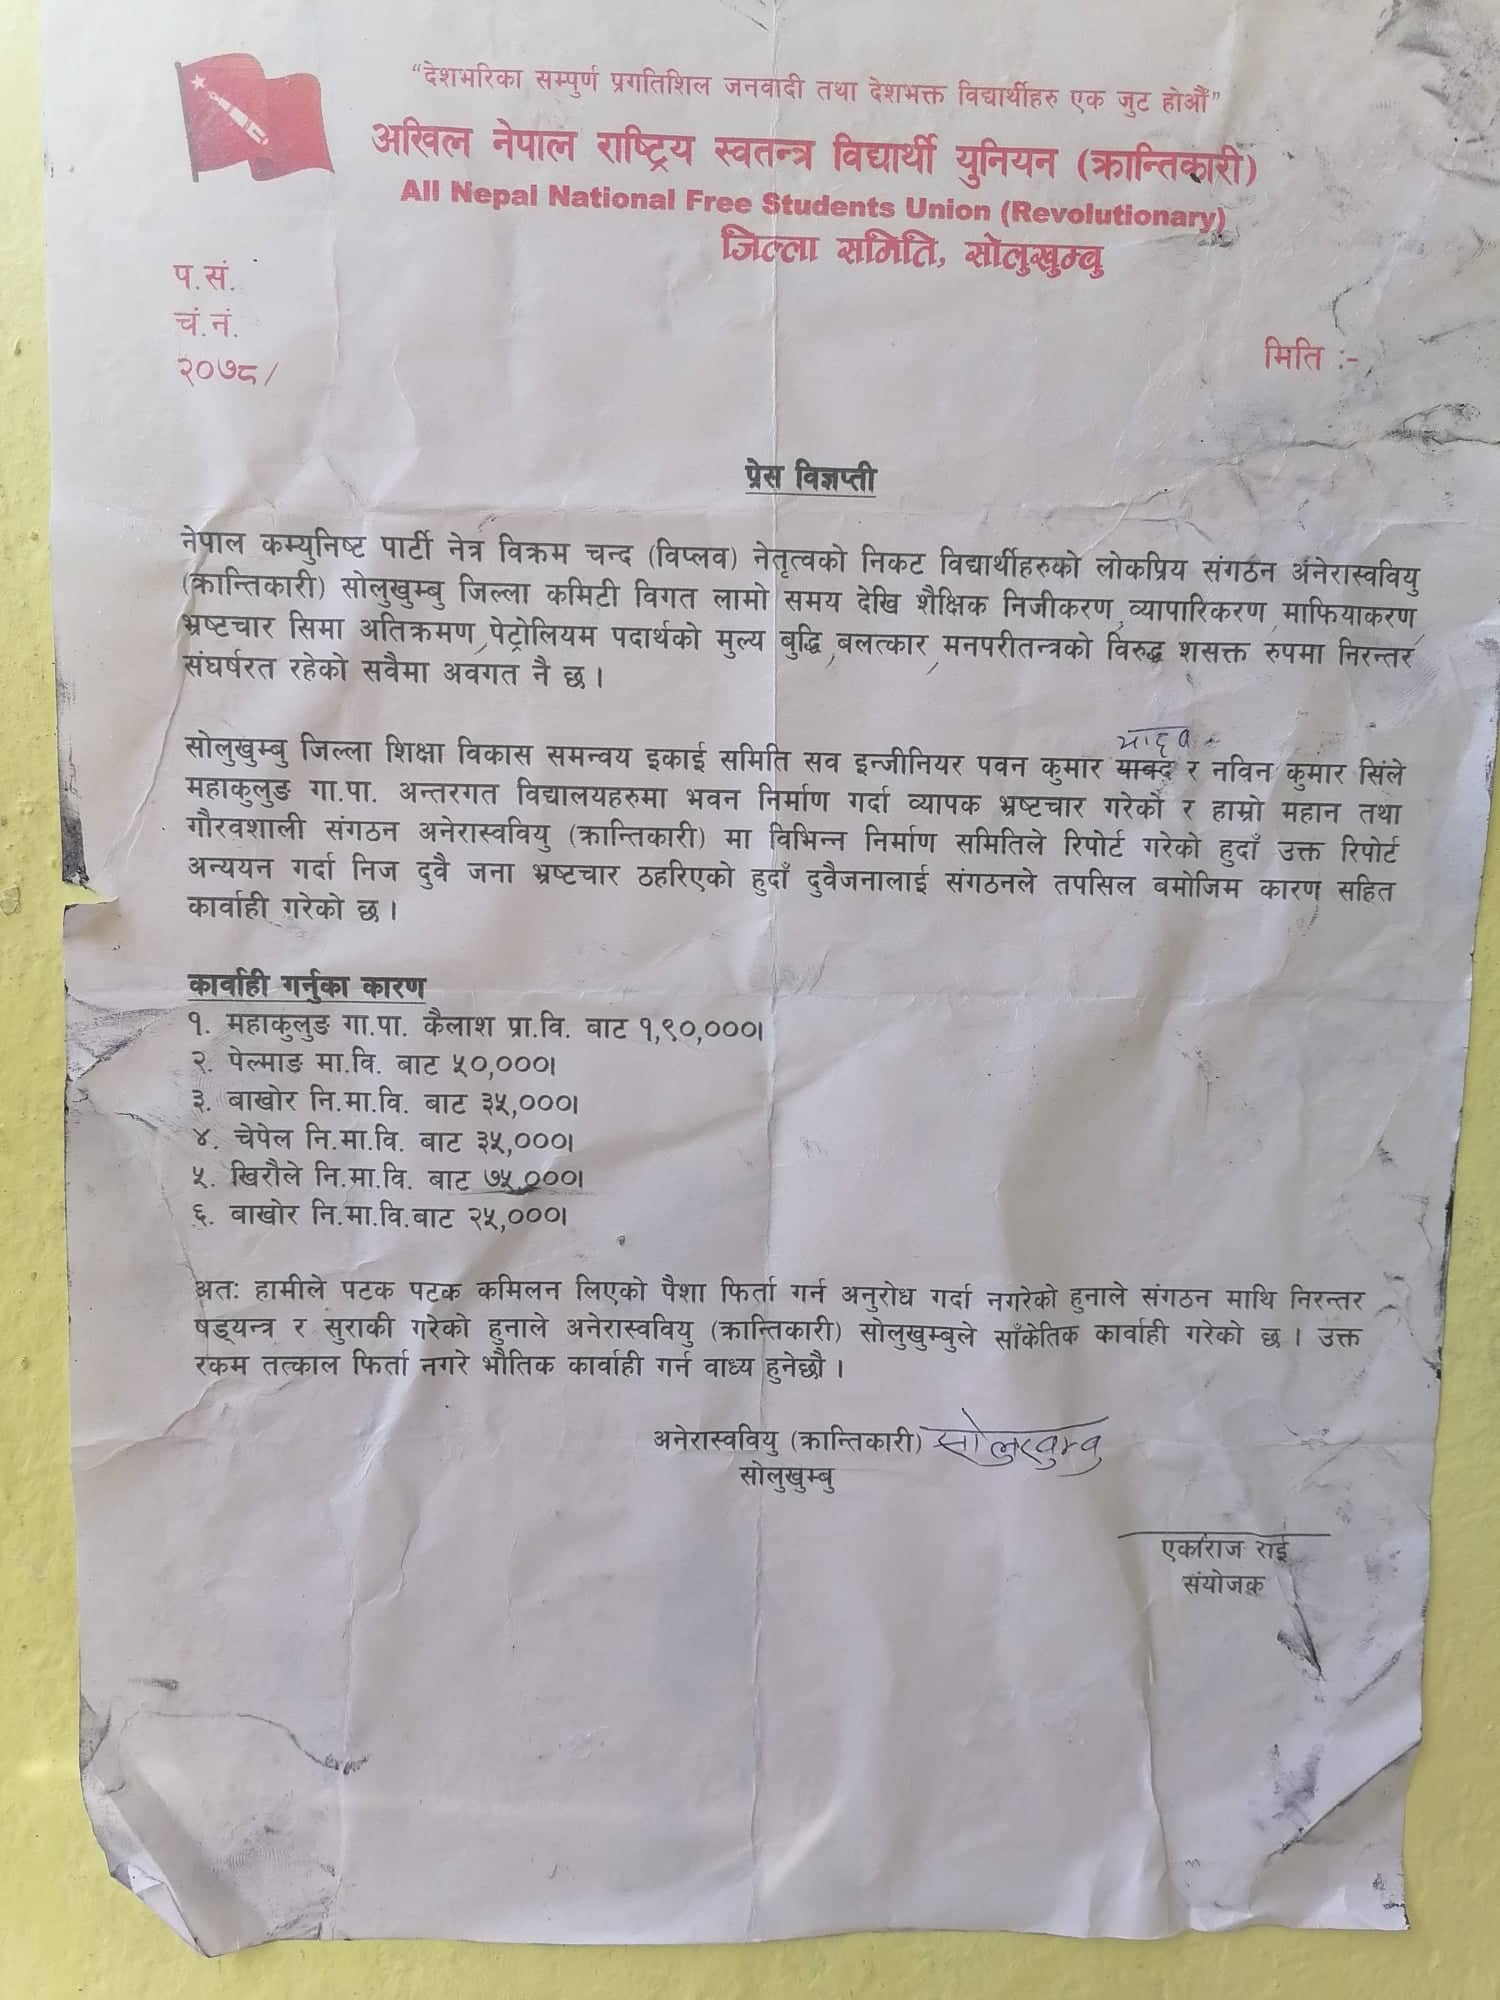 “देशभरिका सम्पुर्ण प्रगतिशिल जनवादी तथा देशभक्त विद्यार्थीहरु एक जुट होऔं”
अखिल नेपाल राष्ट्रिय स्वतन्त्र विद्यार्थी युनियन (क्रान्तिकारी)
All Nepal National Free Students Union (Revolutionary)
जिल्ला समिति, सोलुखुम्बु
प.सं.
चं.नं.
२०७८/
मिति :-
प्रेस विज्ञप्ती
नेपाल कम्युनिष्ट पार्टी नेत्र विक्रम चन्द (विप्लव) नेतृत्वको निकट विद्यार्थीहरुको लोकप्रिय संगठन अनेरास्ववियु
(क्रान्तिकारी) सोलुखुम्बु जिल्ला कमिटी विगत लामो समय देखि शैक्षिक निजीकरण,व्यापारिकरण,माफियाकरण,
भ्रष्टचार सिमा अतिक्रमण,पेट्रोलियम पदार्थको मुल्य बुद्धि,बलत्कार,मनपरीतन्त्रको विरुद्ध शसक्त रुपमा निरन्तर
संघर्षरत रहेको सवैमा अवगत नै छ ।
यादव
सोलुखुम्बु जिल्ला शिक्षा विकास समन्वय इकाई समिति सव इन्जीनियर पवन कुमार याक्द र नविन कुमार सिंले
महाकुलुङ गा.पा. अन्तरगत विद्यालयहरुमा भवन निर्माण गर्दा व्यापक भ्रष्टचार गरेको र हाम्रो महान तथा
गौरवशाली संगठन अनेरास्ववियु (क्रान्तिकारी) मा विभिन्न निर्माण समितिले रिपोर्ट गरेको हुदाँ उक्त रिपोर्ट
अन्ययन गर्दा निज दुवै जना भ्रष्टचार ठहरिएको हुदाँ दुवैजनालाई संगठनले तपसिल बमोजिम कारण सहित
कार्वाही गरेको छ ।
कार्वाही गर्नुका कारण
१. महाकुलुङ गा.पा. कैलाश प्रा.वि. बाट १,९०,०००।
२. पेल्माङ मा.वि. बाट ५०,०००।
३. बाखोर नि.मा.वि. बाट ३५,०००।
४. चेपेल नि.मा.वि. बाट ३५,०००।
५. खिरौले नि.मा.वि. बाट ७५,०००।
६. बाखोर नि.मा.वि.बाट २५,०००।
अतः हामीले पटक पटक कमिलन लिएको पैशा फिर्ता गर्न अनुरोध गर्दा नगरेको हुनाले संगठन माथि निरन्तर
षड्यन्त्र र सुराकी गरेको हुनाले अनेरास्ववियु (क्रान्तिकारी) सोलुखुम्बुले साँकेतिक कार्वाही गरेको छ । उक्त
रकम तत्काल फिर्ता नगरे भौतिक कार्वाही गर्न वाध्य हुनेछौ ।
अनेरास्ववियु (क्रान्तिकारी) सोलुखुम्बु
सोलुखुम्बु
एकाराज राई
संयोजक